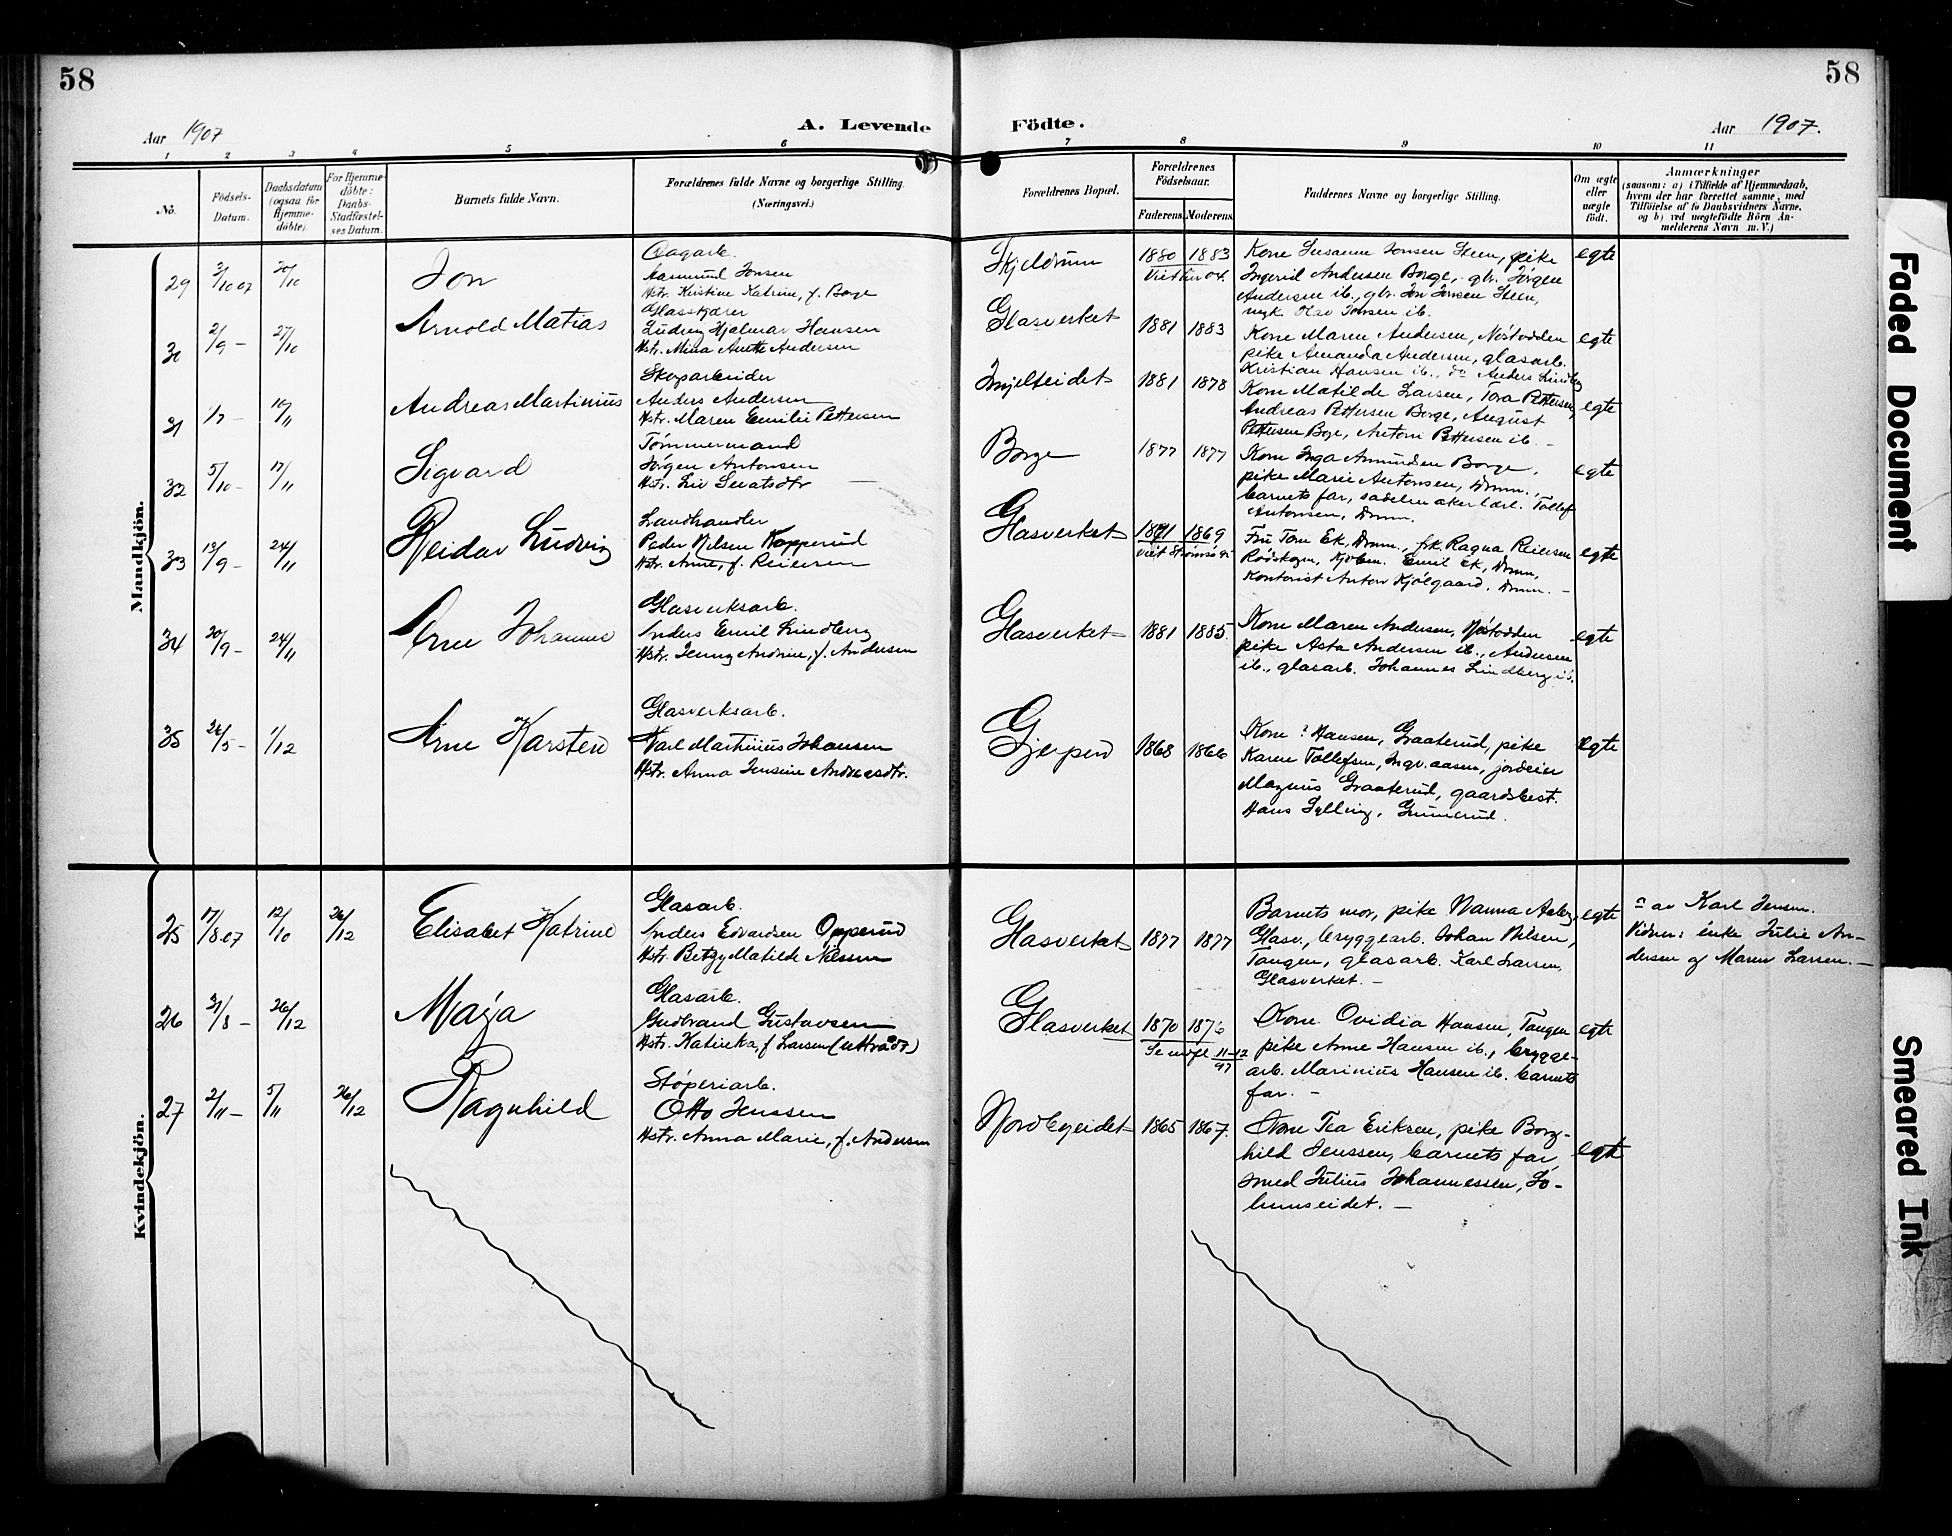 58
58
Aar 1907
A. Levende
Födte.
Aar 1907.
1 2 3 4 5 6 7 8 9 10 11
No.
Födsels-
Datum.
Daabsdatum
(ogsaa for
Hjemme-
döbte).
For Hjemme-
döbte:
Daabs-
Stadfæstel-
ses Datum.
Barnets fulde Navn.
Forældrenes fulde Navne og borgerlige Stilling.
(Næringsvei.)
Forældrenes Bopæl.
Forældrenes
Födselsaar.
Faderens Moderens
Faddernes Navne og borgerlige Stilling.
Om ægte
eller
uægte
födt.
Anmærkninger
(saasom: a) i Tilfælde af Hjemmedaab,
hvem der har forrettet samme, med
Tilföielse af to Daabsvidners Navne,
og b) ved uægtefödte Börn An-
melderens Navn m. V.)
Mandkjön.
29
3/10 07
20/10
Jon
Aasmund Jonsen
Hstr. Kristine Katrine, f. Borge
1880 1883
Kone Susanne Jonsen Steen, pike
Ingerid Andersen Borge, gbr. Jörgen
Andersen ib., gbr. Jon Jonsen Steen,
ungk. Olav Jonsen ib.
egte
30
2/9 –
27/10
Arnold Matias
Ludvig Hjalmar Hansen
Hstr. Mina Anette Andersen
Glasverket
1881 1883
Kone Maren Andersen, Nöstodden
pike Amanda Andersen, glasarb.
Kristian Hansen ib., do Anders Lindberg
egte
31
1/7 –
10/11
Andreas Martinius
Skogarbeider
Anders Andersen
Hstr. Maren Emilie Pettersen
1881 1878
Kone Matilde Larsen, Tora Pettersen,
Andreas Pettersen Borge, August
Pettersen Borge, Anton Pettersen ib. –
egte
32
5/10 –
17/11
Sigvard
Tömmermand
Jörgen Antonsen
Hstr. Liv
Borge
1877 1877
Kone Inga Amundsen Borge,
pike Marie Antonsen, Dram.,
barnets far, sadelmakerlærl. Tollef
Antonsen, Dram.
egte
33
13/9 –
24/11
Reidar Ludvig
Landhandler
Peder Nilsen Kopperud
Hstr. Anne, f. Reiersen
Glasverket
1871 1869
Fru Tom Ek, Dram., frk. Ragna Reiersen
Rödskogen, Emil Ek, Dram,
Kontorist Anton Kjölgaard, Dram. –
egte
34
20/9 –
24/11
Arne Johannes
Glasverksarb.
Anders Emil Lindberg
Hstr. Jenny Andrine, f. Andersen
Glasverket
1881 1885.
Kone Maren Andersen, Nöstodden
pike Asta Andersen ib., Andersen
ib., glasarb. Johannes Lindberg ib.
egte
35
26/5 –
1/12
Arne Karsten
Glasverksarb.
Karl Martinius Johansen
Hstr. Anna Jensine Andreasdtr.
Gjerpen
1868 1866
Kone ? Hansen, Graaterud, pike
Karen Tollefsen, Ingv. aasen, jordeier
Magnus Graaterud, gaardsbest.
Hans Sylling, Gunnerud.
egte
Kvindekjön.
25
17/8.07
12/10
26/12
Elisabet Katrine
Glasarb.
Anders Edvardsen Opperud
Hstr. Betzy Matilde Nilssen
Glasverket
1877 1877
Barnets mor, pike Nanna Aaby,
Glasv., bryggearb. Johan Nilsen,
Tangen, glasarb. Karl Larsen,
Glasverket. –
egte
av Karl Jensen.
Vidner: enke Julie An-
dersen og Maren Larsen. –
26
31/8 –
26/12
Maja
Glasarb.
Gudbrand Gustavsen
Hstr. Katinka, f. Larsen
Glasverket
1870 1876
Kone Ovidia Hansen, Tangen
pike Anne Hansen ib., brygge-
arb. Marinius Hansen ib. barnets
far. –
egte
27
2/11 –
5/11
26/12
Ragnhild
Støperiarb.
Otto Jenssen
Hstr. Anna Marie, f. Andersen
Nordbyeidet
1865 1867.
Kone Tea Eriksen, pike Borg-
hild Jenssen, barnets far
smed Julius Johannessen, So-
lumseidet. –
egte
Faded Document
Smeared Ink